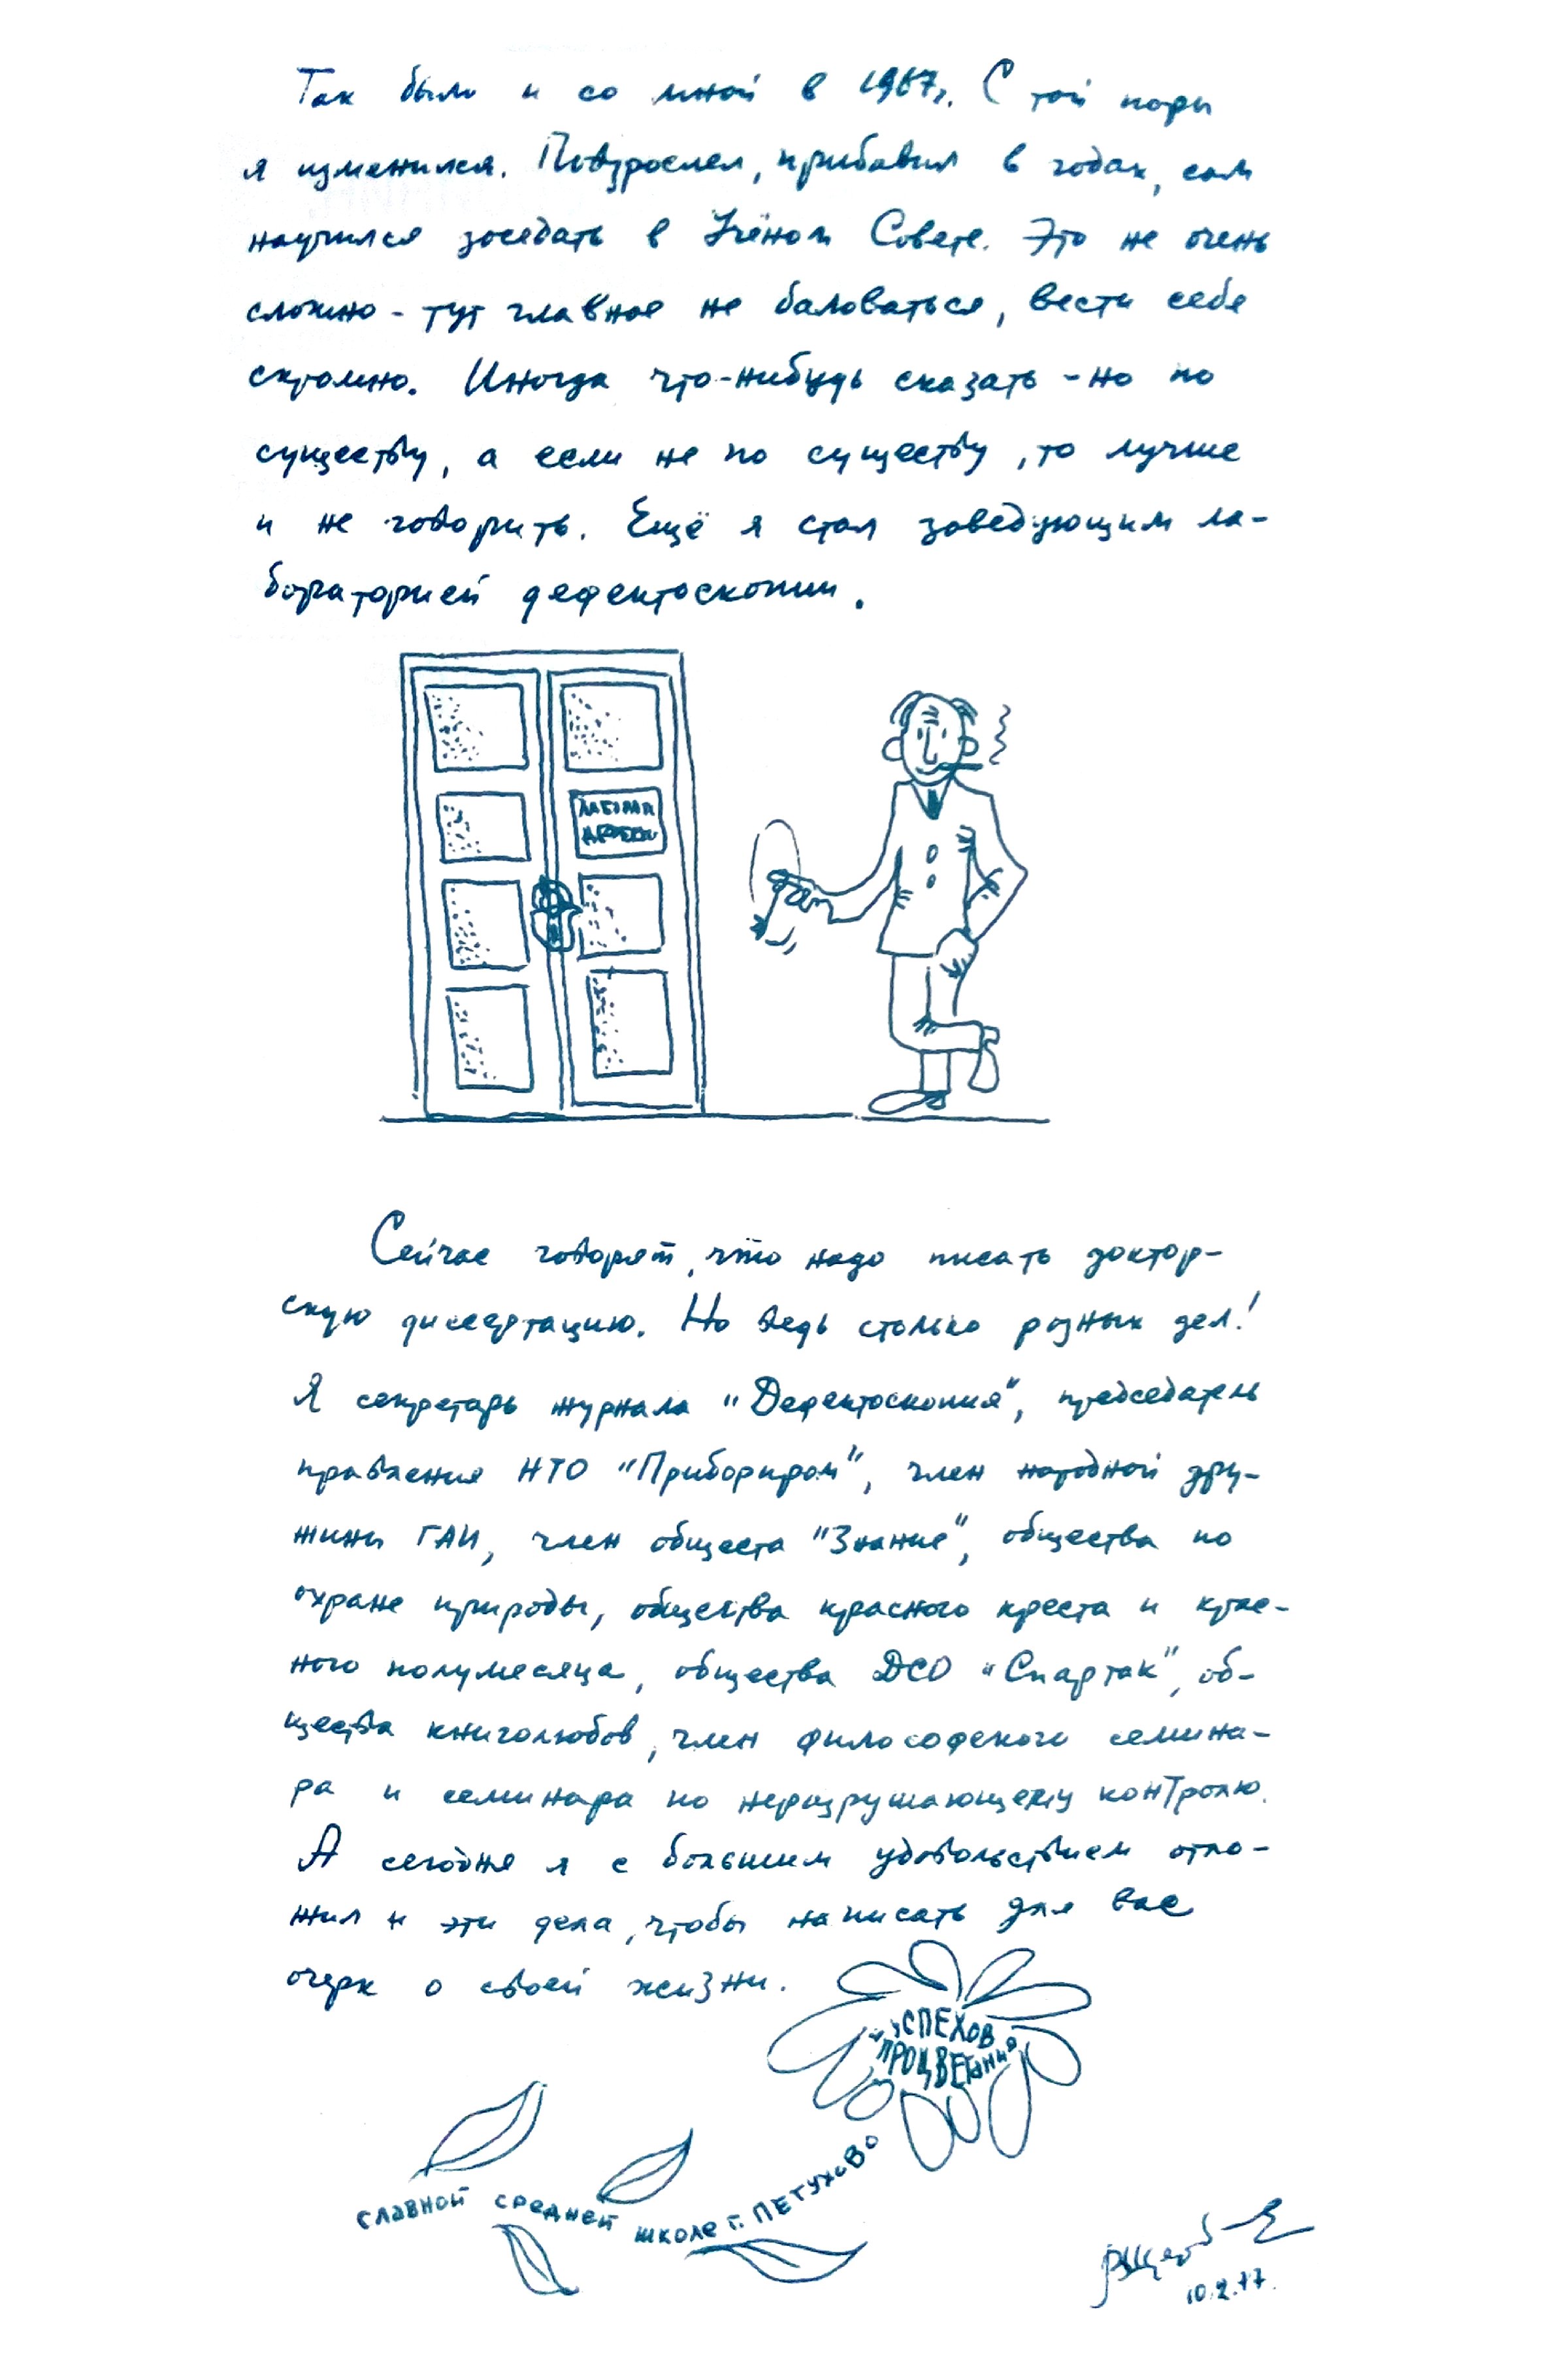 Так было и со мной в 1967г. С той поры
я изменился. Повзрослел, прибавил в годах, сам
научился заседать в Учёном Совете. Это не очень
сложно - тут главное не баловаться, вести себя
скромно. Иногда что-нибудь сказать - но по
существу, а если не по существу, то лучше
и не говорить. Ещё я стал заведующим ла-
бораторией дефектоскопии.
Сейчас говорят, что надо писать доктор-
скую диссертацию. Но ведь столько разных дел!
Я секретарь журнала "Дефектоскопия", председатель
правления НТО "Приборпром", член народной дру-
жины ГАИ, член общества "Знание", общества по
охране природы, общества красного креста и крас-
ного полумесяца, общества ДСО "Спартак", об-
щества книголюбов, член философского семина-
ра и семинара по неразрушающему контролю.
А сегодня я с большим удовольствием отло-
жил и эти дела, чтобы написать для вас
очерк о своей жизни.
УСПЕХОВ
и ПРОЦВЕТАНИЯ
СЛАВНОЙ СРЕДНЕЙ ШКОЛЕ Г. ПЕТУХОВО
10.2.77.